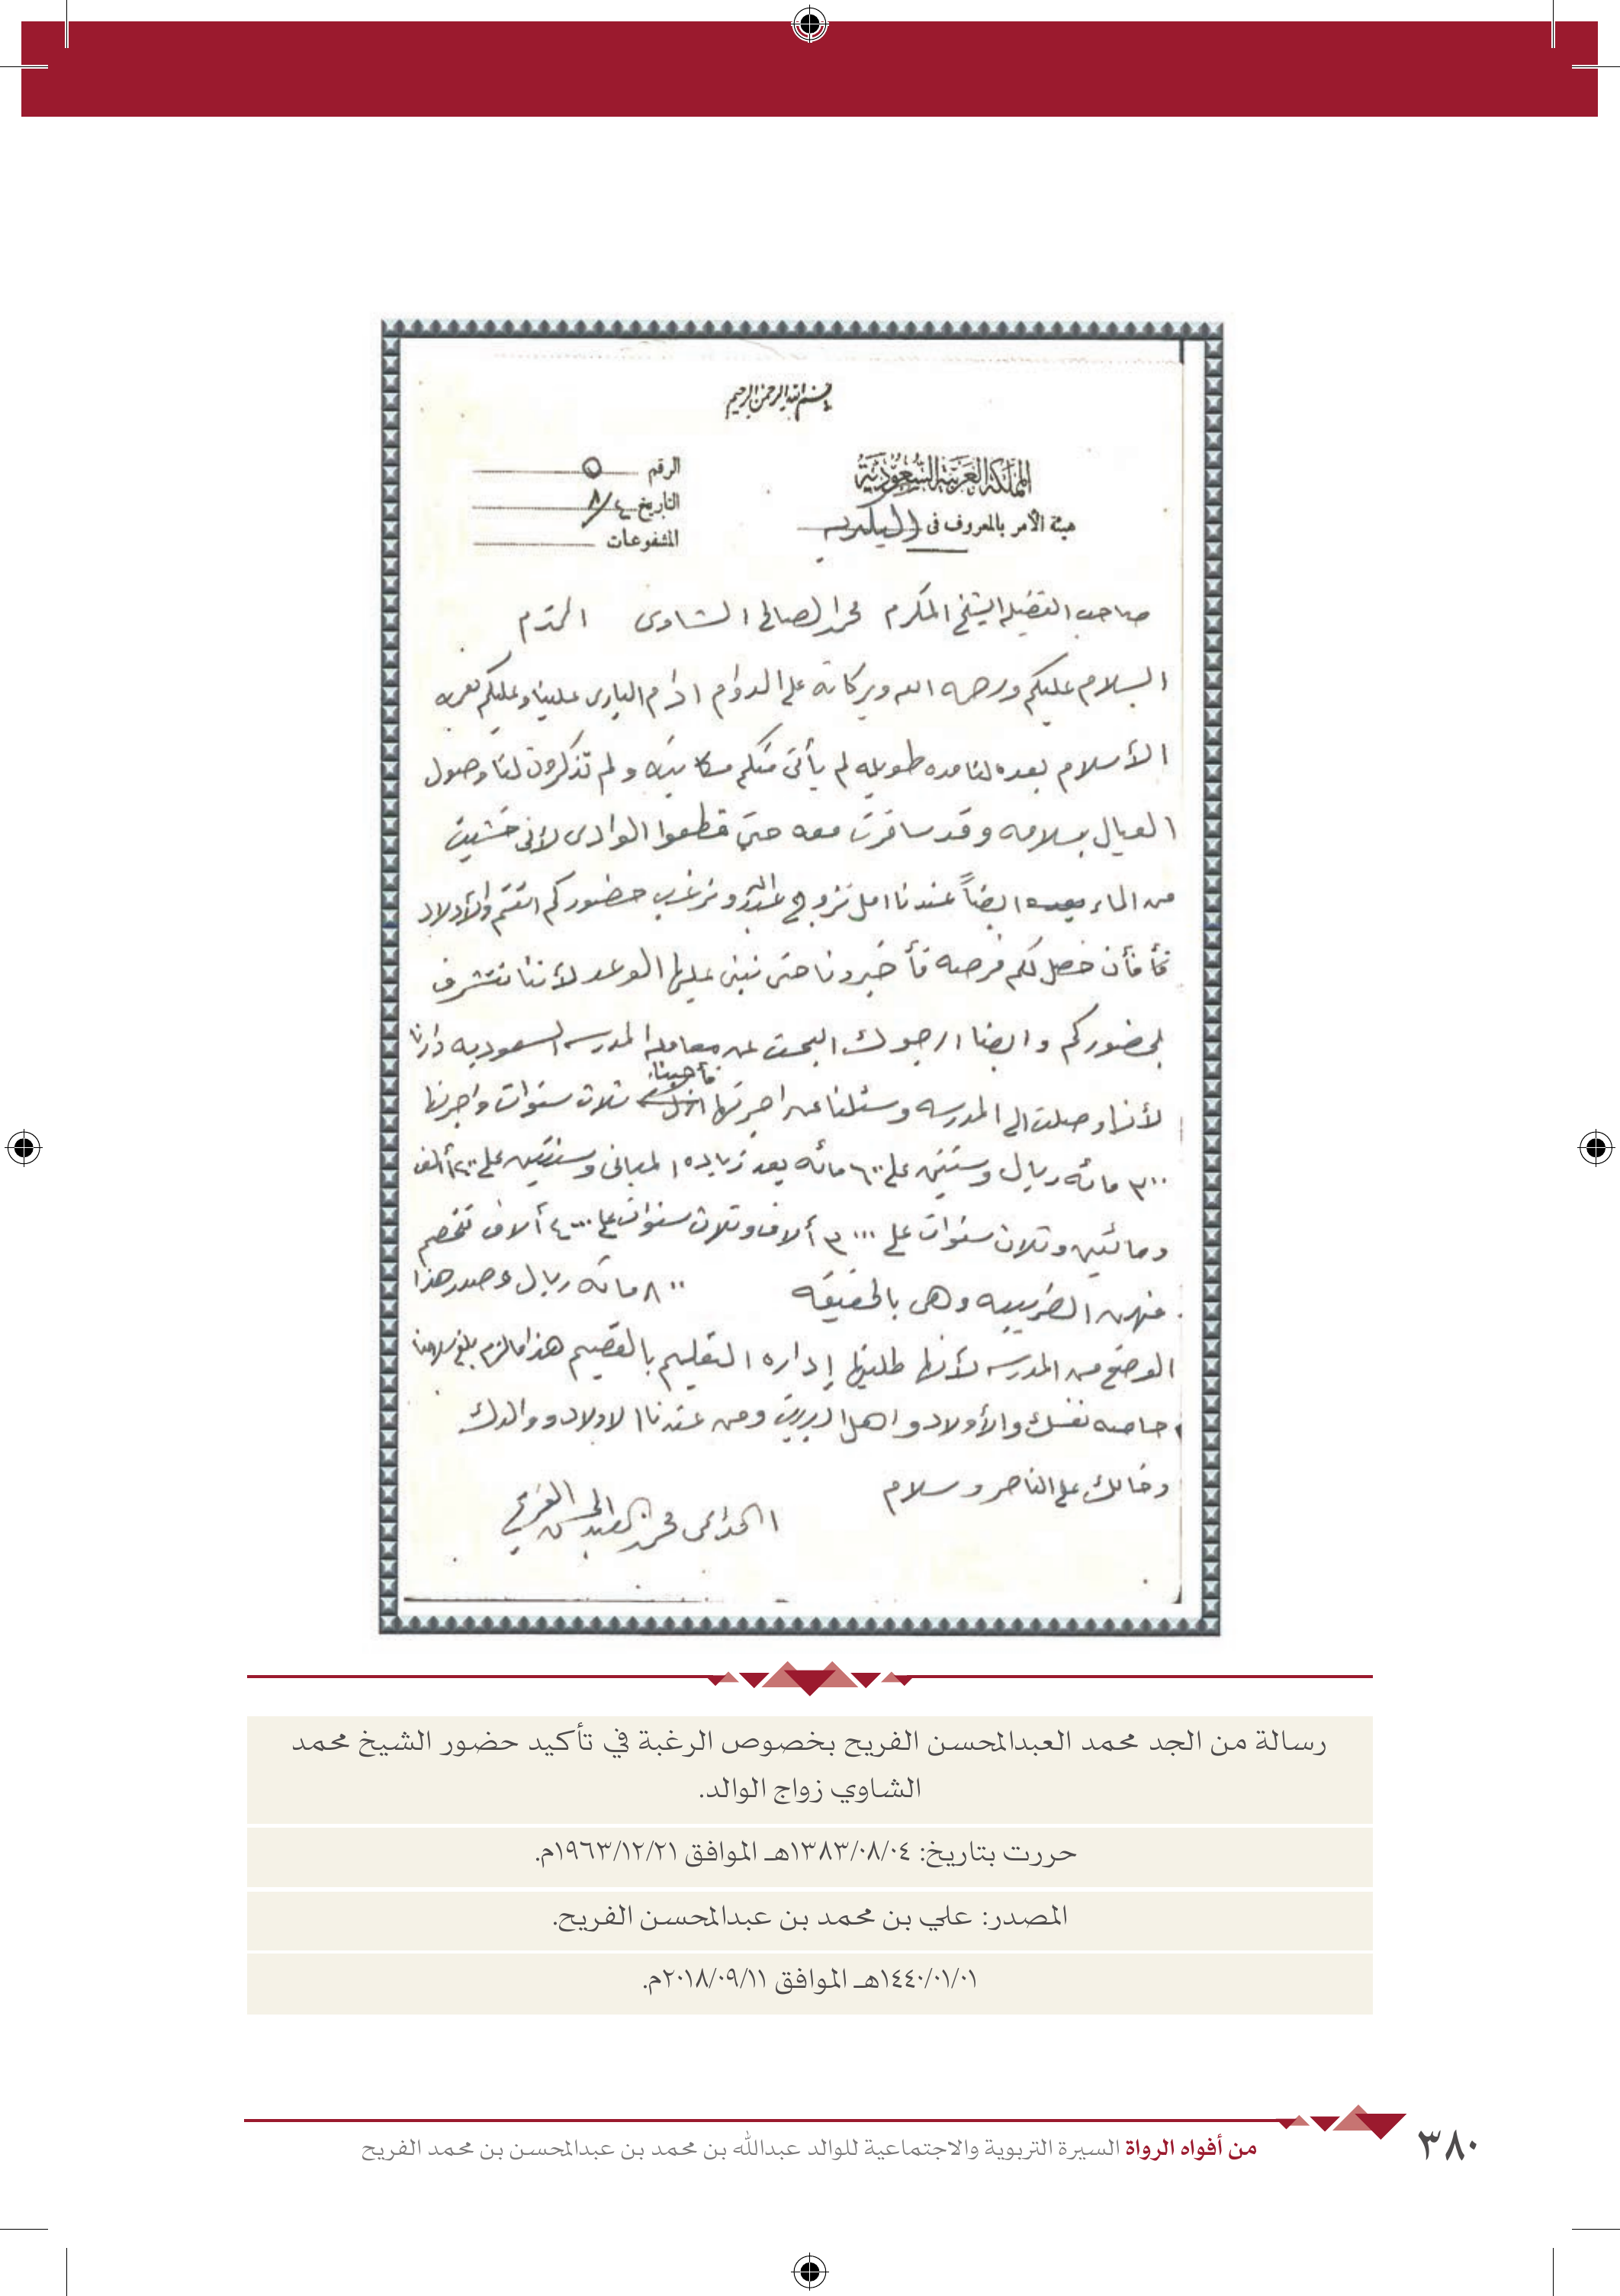 بسم الله الرحمن الرحيم
المملكة العربية السعودية
هيئة الأمر بالمعروف في البكيريه
الرقم ٥
التاريخ ٨/٤
المشفوعات
صاحب الفضيله الشيخ المكرم محمد الصالح الشاوى المحترم
السلام عليكم ورحمه الله وبركاته على الدوام ادام البارى علينا وعليكم نعمه
الأسلام بعده لنا مده طويله لم يأتى منكم مكاتيب ولم تذكرون لنا وصول
العيال بسلامه وقد سافرت معه حتى قطعوا الوادى لأنى خشيت
من الماء ايضاً عندنا امل نزوج عبدالله ونرغب حضوركم انتم والأولاد
فأن حصل لكم فرصه فأخبرونا حتى نبنى عليها الوعد لأننا نتشرف
بحضوركم وايضا ارجوك البحث عن معامله المدرسه السعوديه دارنا
لأنها وصلت الى المدرسه وسئلنا عن اجرتها فأجبنا ثلاث سنوات واجرتها
٣٠٠ مائه ريال وسنتين على ٦٠٠ مائه بعد زياده المبانى وسنتين على ألف
ومائتين وثلاث سنوات على ٣٠٠٠ ألاف وثلاث سنوات على ٤٠٠٠ ألاف تخصم
منهن الضريبيه وهى بالحقيقه ٨٠٠ مائه ريال وصدر هذا
الوضع من المدرسه لأنها طلبتها إداره التعليم بالقصيم هذا مالزم بلغ سلامنا
خاصه نفسك والأولاد واهل البيت ومن عندنا الاولاد ووالدك
وخالك على الناصر وسلام
الداعى محمد العبدالمحسن الفريح
رسالة من الجد محمد العبدالمحسن الفريح بخصوص الرغبة في تأكيد حضور الشيخ محمد
الشاوي زواج الوالد.
حررت بتاريخ: ١٣٨٣/٠٨/٠٤هـ الموافق ١٩٦٣/١٢/٢١م.
المصدر: علي بن محمد بن عبدالمحسن الفريح.
١٤٤٠/٠١/٠١هـ الموافق ٢٠١٨/٠٩/١١م.
من أفواه الرواة السيرة التربوية والاجتماعية للوالد عبدالله بن محمد بن عبدالمحسن بن محمد الفريح
٣٨٠